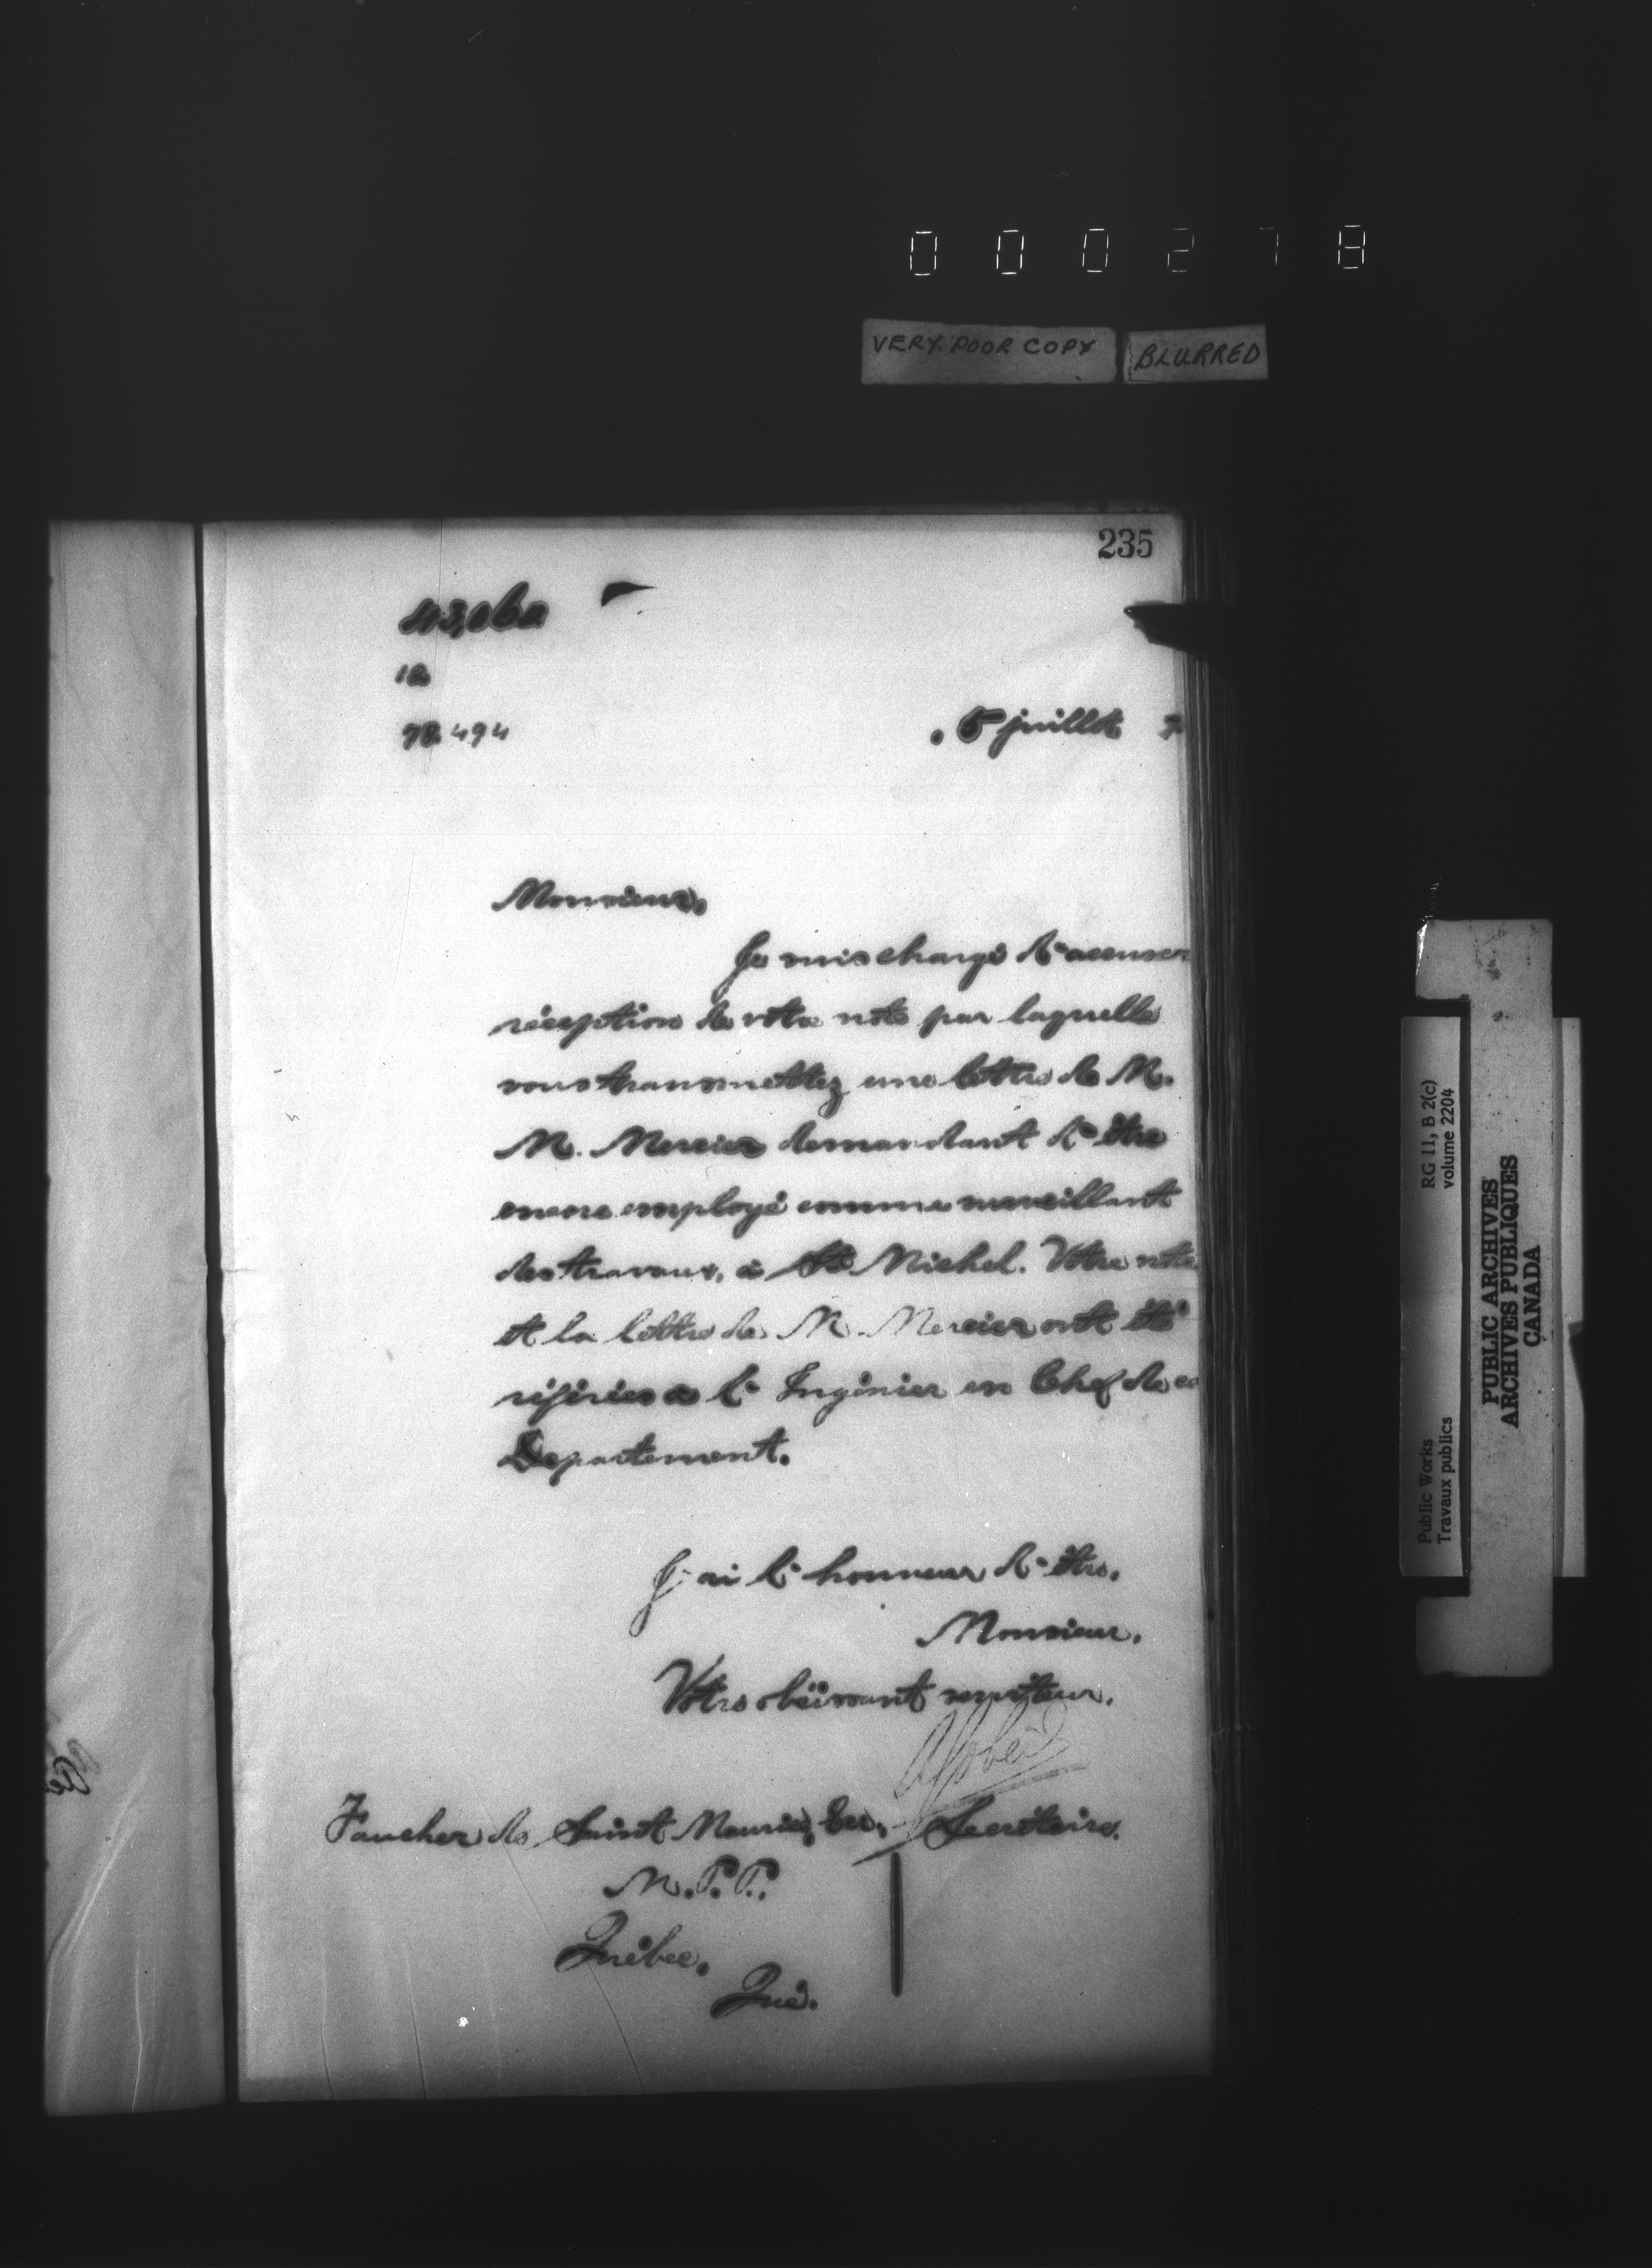 000278
VERY POOR COPY BLURRED
235
43,060
18
98 494
5 juillet 9
Monsieur,
Je suis chargé d'accuser
réception de votre note par laquelle
vous transmettez une lettre de M.
M. Mercier demandant d'être
encore employé comme surveillant
des travaux, à St Michel. Votre note
et la lettre de M. Mercier ont été
référées à l'Ingénier en Chef de ce
Departement.
J'ai l'honneur d'être,
Monsieur,
Votre obéissant serviteur,
Faucher de Saint Maurice, Ecr, Secrétaire.
M.P.P.
Québec,
Qué.
Public Works RG 11, B 2(c)
Travaux publics volume 2204
PUBLIC ARCHIVES
ARCHIVES PUBLIQUES
CANADA